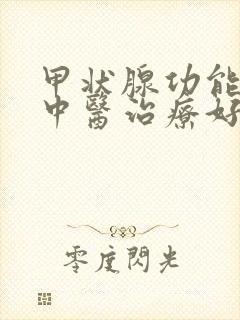 甲状腺功能
中醫治療好
零度閃光